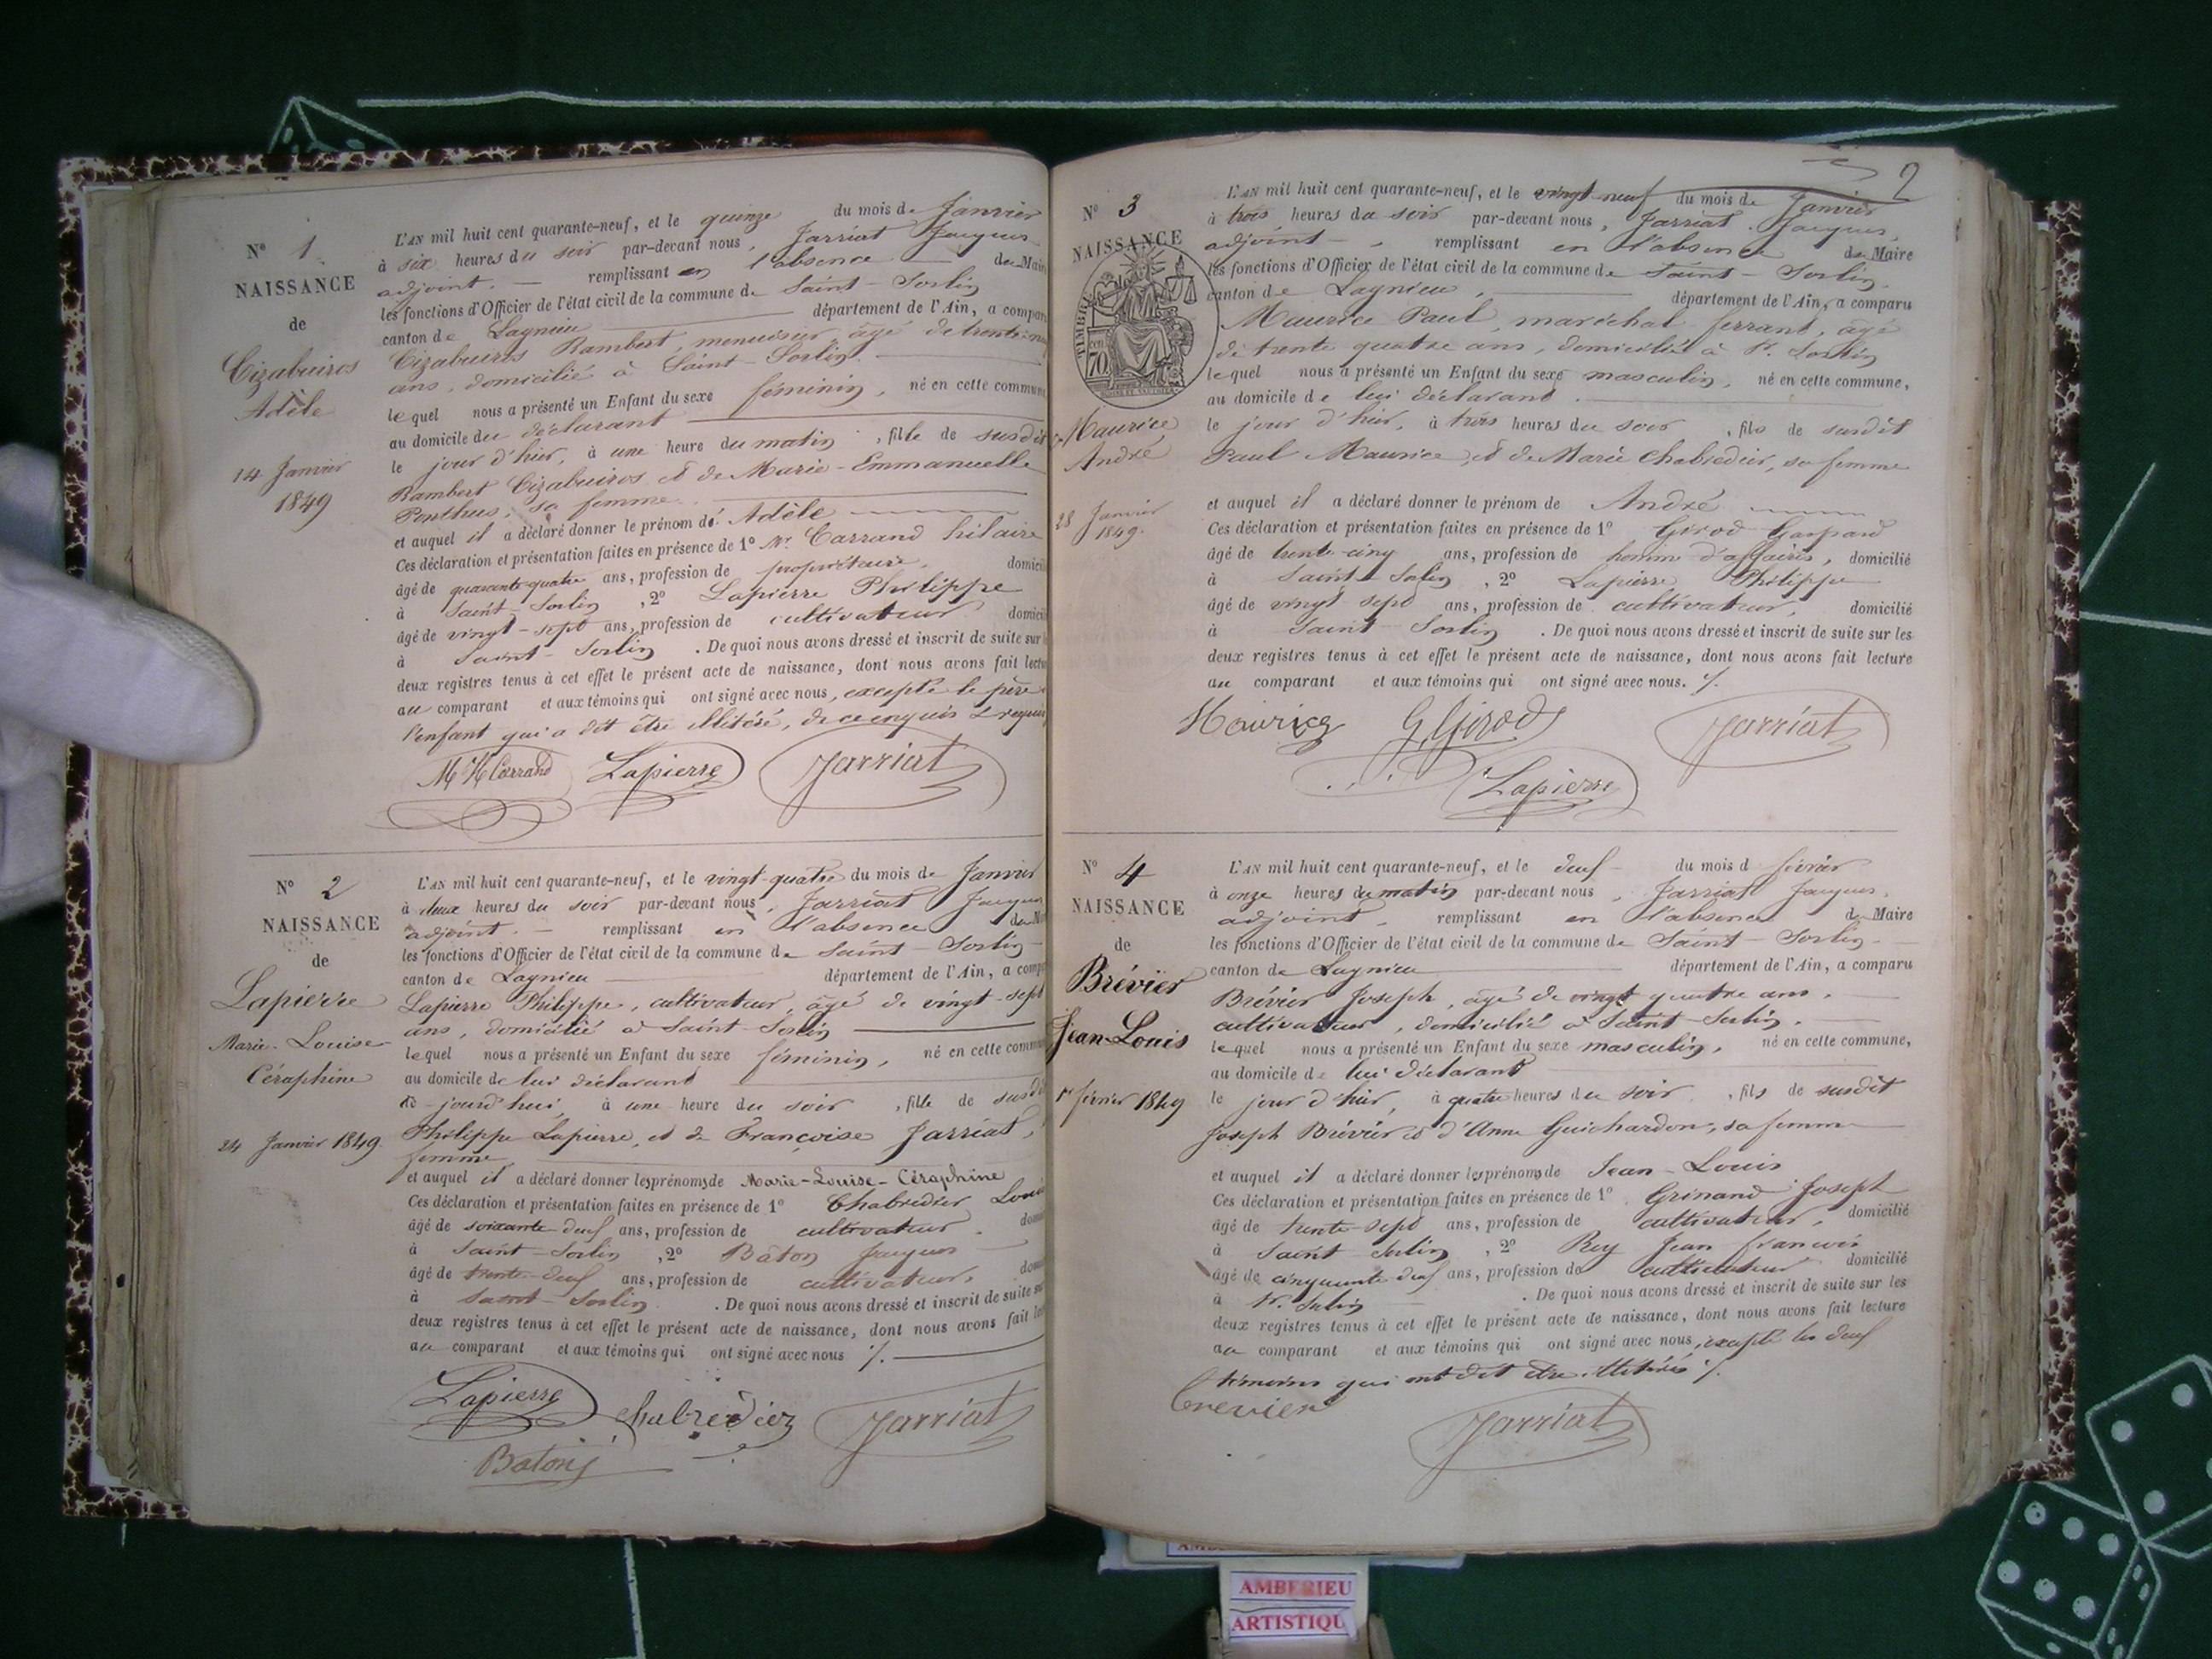 N° 1
NAISSANCE
de
Cizabuiros
Adèle
14 Janvier
1849
L'AN mil huit cent quarante-neuf, et le quinze du mois de Janvier
à six heures du soir par-devant nous, Jarriat Jacques
adjoint. remplissant en l'absence du Maire
les fonctions d'Officier de l'état civil de la commune de Saint-Sorlin
canton de Lagnieu département de l'Ain, a compar
Cizabuiros Rambert, menuisier, âgé de trente
ans, domicilié à Saint-Sorlin.
lequel nous a présenté un Enfant du sexe féminin, né en cette commune
au domicile du déclarant
le jour d'hier, à une heure du matin, fille de susdit
Rambert Cizabuiros et de Marie-Emmanuelle
Ponthus, sa femme
et auquel il a déclaré donner le prénom de Adèle
Ces déclaration et présentation faites en présence de 1° Mr. Carrand hilaire
âgé de quarante quatre ans, profession de propriétaire, domicil
à Saint-Sorlin, 2° Lapierre Philippe
âgé de vingt-sept ans, profession de cultivateur domicil
à Saint-Sorlin. De quoi nous avons dressé et inscrit de suite sur
deux registres tenus à cet effet le présent acte de naissance, dont nous avons fait lectu
au comparant et aux témoins qui ont signé avec nous, excepté le père
l'enfant qui a dit être illitéré, de ce enquis & requis
M H Carrand Lapierre Jarriat
N° 2
NAISSANCE
de
Lapierre
Marie-Louise
Céraphine
24 Janvier 1849.
L'AN mil huit cent quarante-neuf, et le vingt-quatre du mois de Janvier
à deux heures du soir par-devant nous, Jarriat Jacques
adjoint. remplissant en l'absence du
les fonctions d'Officier de l'état civil de la commune de Saint-Sorlin
canton de Lagnieu département de l'Ain, a comp
Lapierre Philippe, cultivateur, âgé de vingt-sept
ans, domicilié à Saint-Sorlin
lequel nous a présenté un Enfant du sexe féminin, né en cette commun
au domicile de lui déclarant
jourd'hui, à une heure du soir, fille de susdi
Philippe Lapierre, et de Françoise Jarriat,
femme
et auquel il a déclaré donner les prénoms de Marie-Louise-Céraphine
Ces déclaration et présentation faites en présence de 1° Chabredier Louis
âgé de soixante deuf ans, profession de cultivateur. dom
à Saint-Sorlin, 2° Bâton Jacques
âgé de trente-deuf ans, profession de cultivateur, dom
à Saint-Sorlin. De quoi nous avons dressé et inscrit de suite su
deux registres tenus à cet effet le présent acte de naissance, dont nous avons fait le
au comparant et aux témoins qui ont signé avec nous
Lapierre Chabredier Jarriat
Baton
2
N° 3
NAISSANCE
TIMBRE
70
Maurice
André
28 Janvier
1849.
L'AN mil huit cent quarante-neuf, et le vingt-neuf du mois de Janvier
à trois heures du soir par-devant nous, Jarriat Jacques,
adjoint, remplissant en l'absence du Maire
les fonctions d'Officier de l'état civil de la commune de Saint-Sorlin
canton de Lagnieu, département de l'Ain, a comparu
Maurice Paul, maréchal ferrant, âgé
de trente quatre ans, domicilié à St. Sorlin
lequel nous a présenté un Enfant du sexe masculin, né en cette commune,
au domicile de lui déclarant.
le jour d'hier, à trois heures du soir, fils de susdit
Paul Maurice, et de Marie Chabredier, sa femme
et auquel il a déclaré donner le prénom de André
Ces déclaration et présentation faites en présence de 1° Girod Gaspard
âgé de trente-cinq ans, profession de homme d'affaires, domicilié
à Saint-Solin, 2° Lapierre Philippe
âgé de vingt-sept ans, profession de cultivateur, domicilié
à Saint-Sorlin. De quoi nous avons dressé et inscrit de suite sur les
deux registres tenus à cet effet le présent acte de naissance, dont nous avons fait lecture
au comparant et aux témoins qui ont signé avec nous.
Mauricg G Girod Jarriat
Lapierre
N° 4
NAISSANCE
de
Brévier
Jean-Louis
1er février 1849
L'AN mil huit cent quarante-neuf, et le deuf du mois d février
à onze heures du matin par-devant nous, Jarriat Jacques,
adjoint, remplissant en l'absence du Maire
les fonctions d'Officier de l'état civil de la commune de Saint-Sorlin
canton de Lagnieu département de l'Ain, a comparu
Brévier Joseph, âgé de vingt quatre ans,
cultivateur, domicilié à Saint-Sorlin.
lequel nous a présenté un Enfant du sexe masculin, né en cette commune,
au domicile de lui déclarant
le jour d'hier, à quatre heures du soir, fils de susdit
Joseph Brévier et d'Anne Guichardon, sa femme
et auquel il a déclaré donner les prénoms de Jean-Louis
Ces déclaration et présentation faites en présence de 1° Grinand Joseph
âgé de trente-sept ans, profession de cultivateur, domicilié
à Saint-Sorlin, 2° Rey Jean francois
âgé de cinquante deuf ans, profession de cultivateur domicilié
à St. Sorlin. De quoi nous avons dressé et inscrit de suite sur les
deux registres tenus à cet effet le présent acte de naissance, dont nous avons fait lecture
au comparant et aux témoins qui ont signé avec nous, excepté les deuf
témoins qui ont dit être illitérés
Brevier Jarriat
AMBERIEU
ARTISTIQU